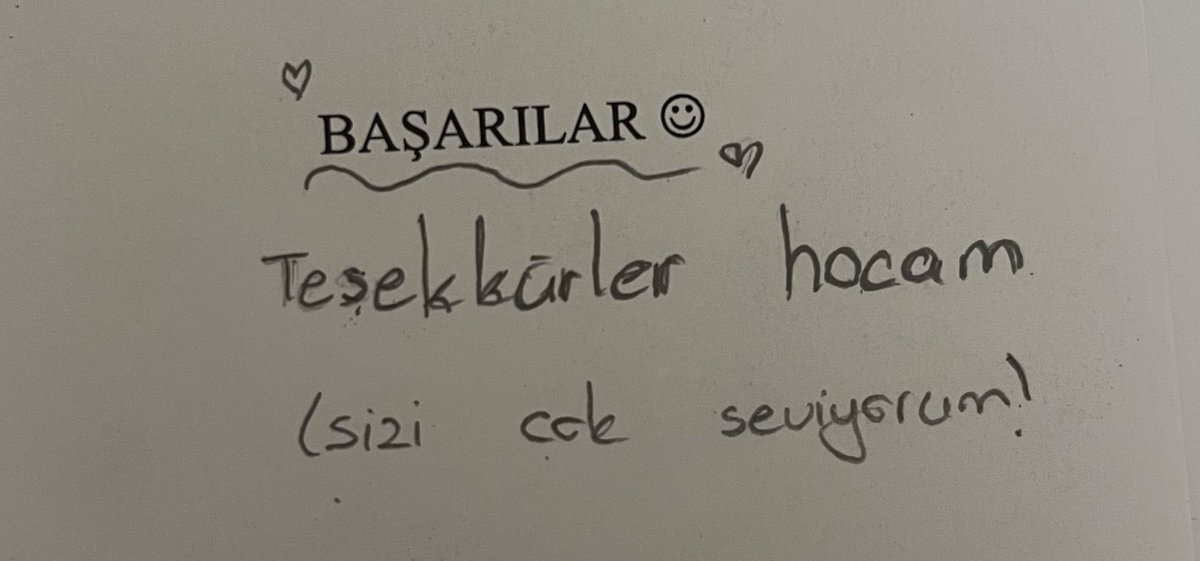 BAŞARILAR ☺
Teşekkürler hocam
(sizi cok seviyorum)